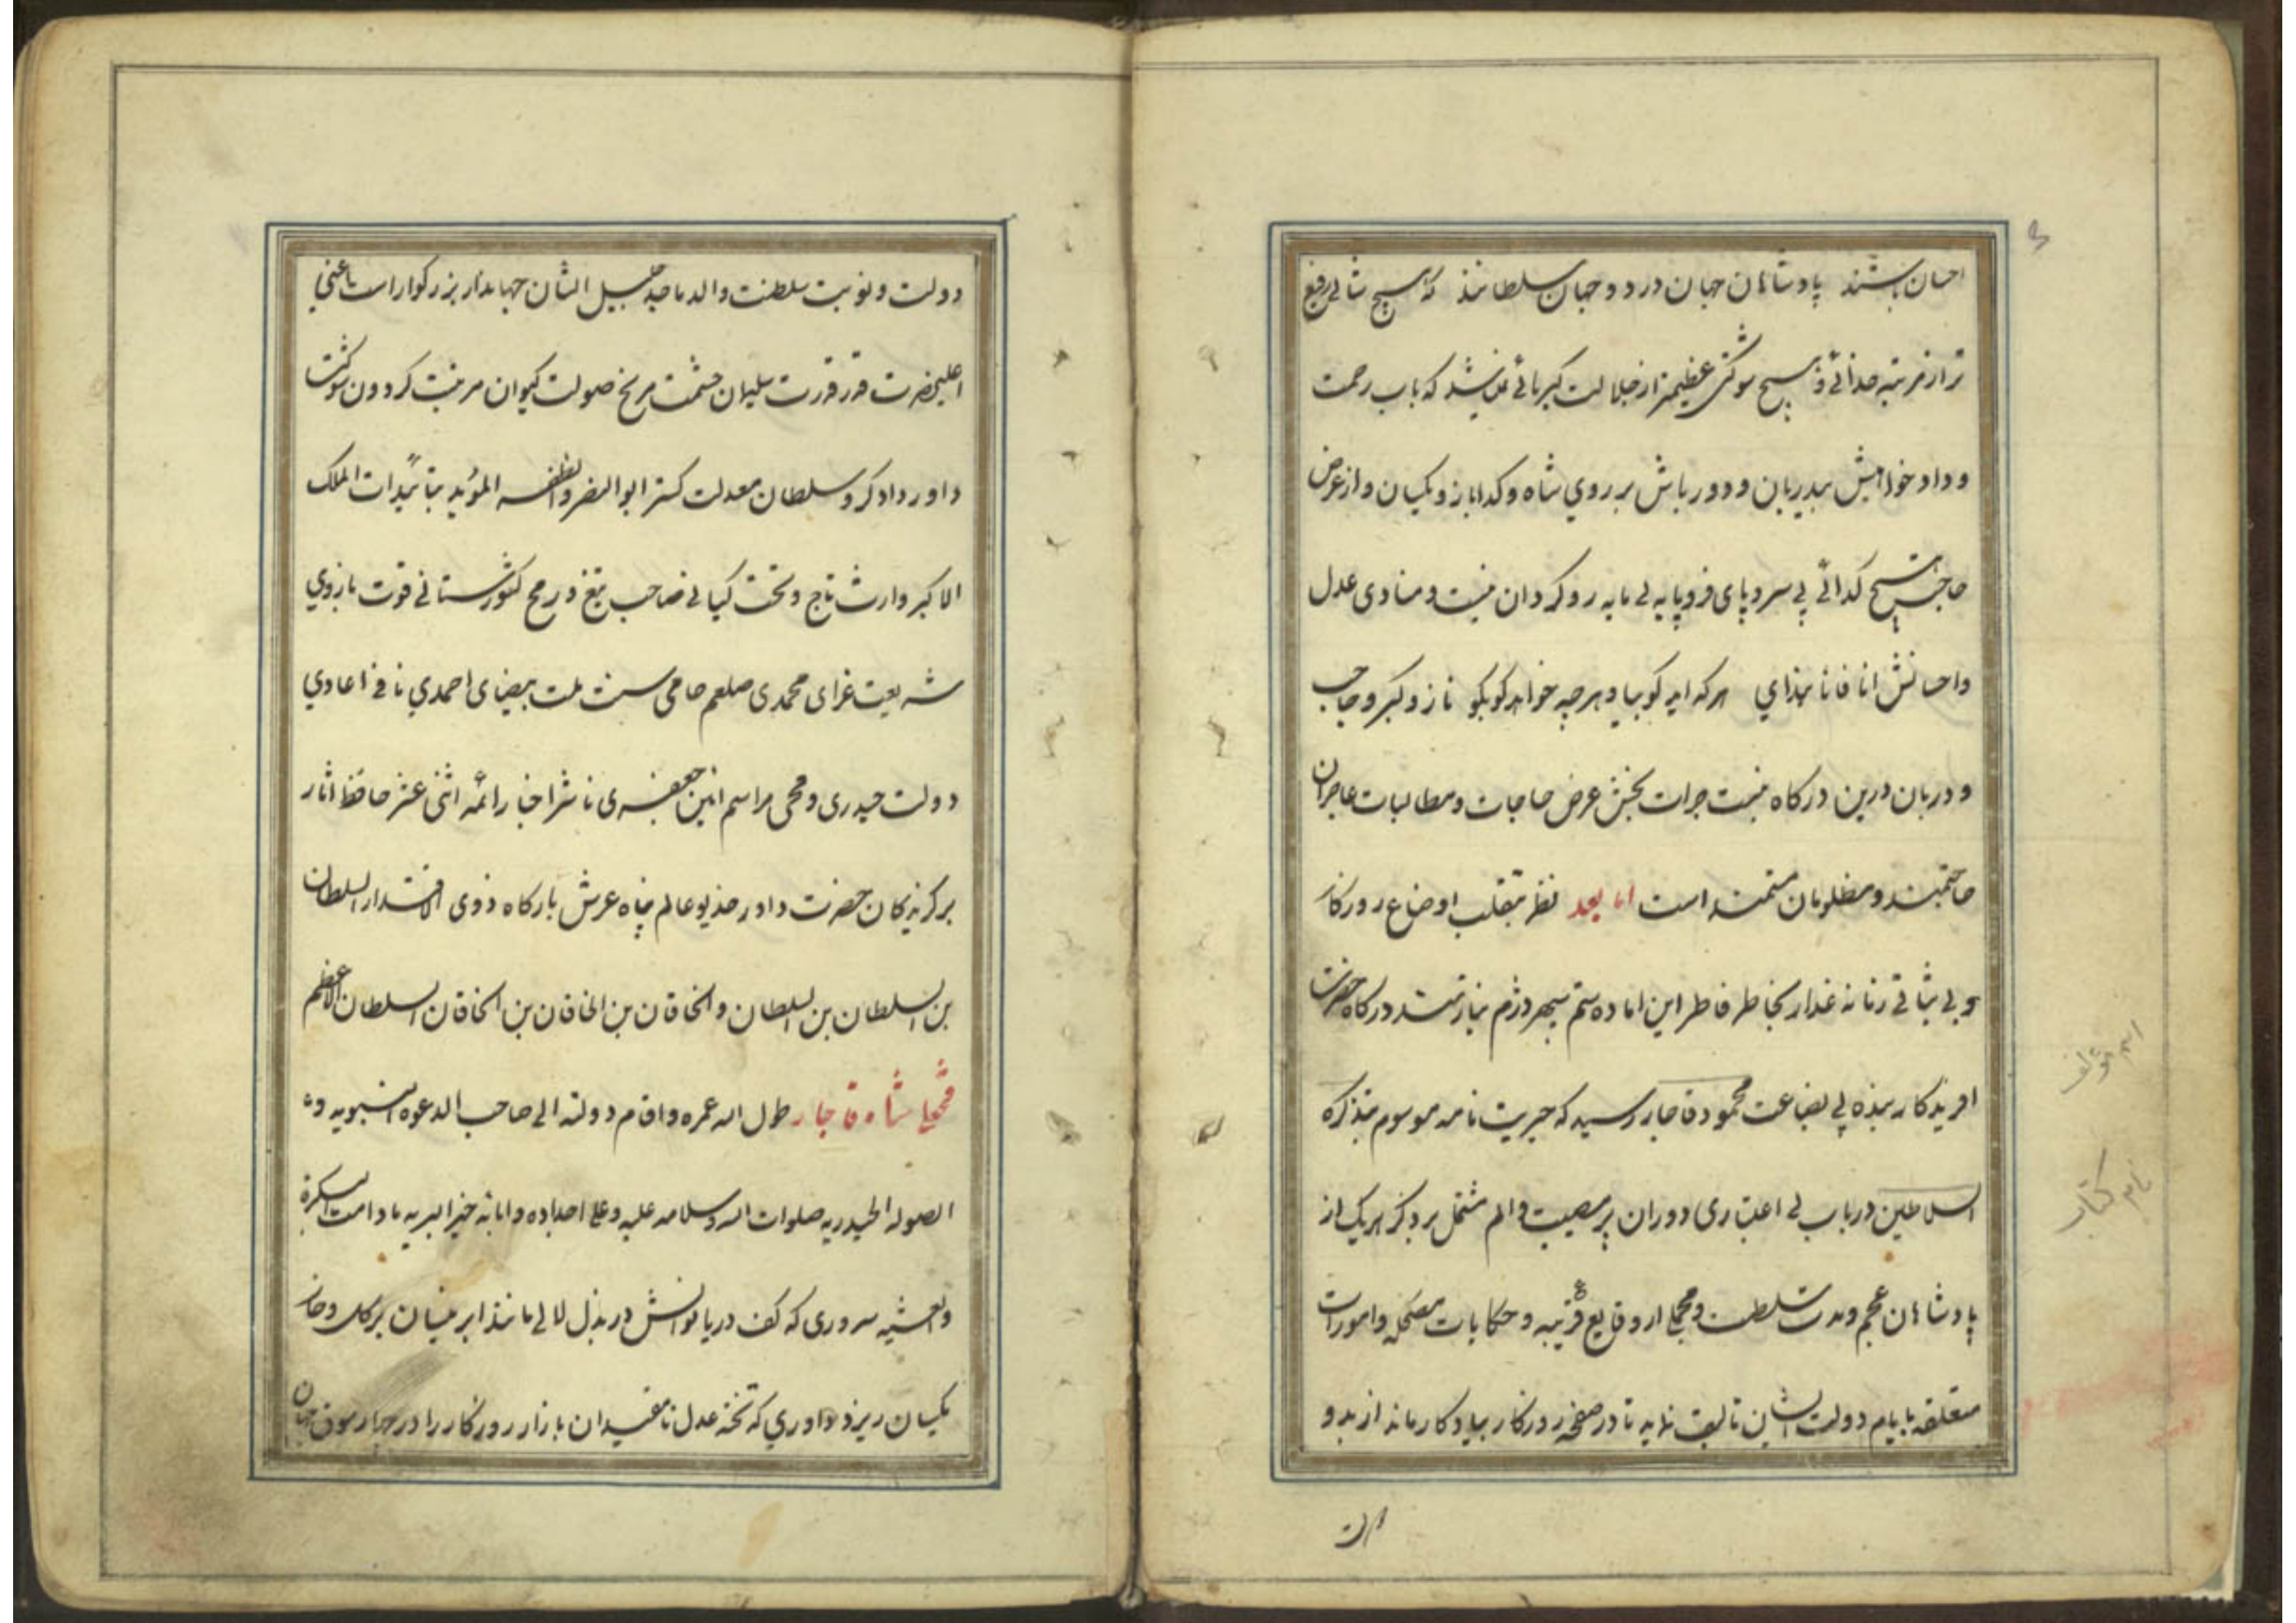 احسان باشند پادشاهان جهان در دو جهان سلطانند که هیچ شانی رفیع
تر از مرتبه خدائی و هیچ شوکتی عظیمتر از جلالت کبریائی که باب رحمت
و داد خواهیش بیدربان و دورباش بر روی شاه و کدا باز و یکسان و از عرض
حاجت هیچ کدائی بی سر و پای فرو پایه بی مایه رو کردان نیست و منادی عدل
و احسانش انا فانا بندای هر که اید کو بیا و هر چه خواهد کو بکو ناز و کبر و حاجب
و دربان درین درکاه نیست جرات بخش عرض حاجات و مطالبات عاجزان
حاجتمند و مظلومان مستمند است اما بعد نظر بتقلب اوضاع روزکار
و بی ثباتی زمانه غدار بخاطر فاطر این اماده ستم سپهر دژم نیازمند درکاه حضرت
افریدکار بنده بی بضاعت محمود قاجار رسید که حیریت نامه موسوم بتذکره
السلاطین در باب بی اعتباری دوران پر مصیبت و الم مشتمل بر ذکر هر یک از
پادشاهان عجم و مدت سلطنت و مجملی از وقایع قریبه و حکایات مضحکه و امورات
متعلقه بایام دولت ایشان تالیف نماید تا در صفحه روزکار بیادکار ماند از بدو
اسم مؤلف
نام کتاب
دولت
دولت و نوبت سلطنت والد ماجد جلیل الشان جهاندار بزرکوار است یاعنی
اعلیحضرت قدر قدرت سلیمان حشمت مریخ صولت کیوان مرتبت کردون شوکت
داور دادکر و سلطان معدلت کستر ابو النصر و الظفر المؤید بتائیدات الملک
الاکبر وارث تاج و تخت کیانی صاحب تیغ و رمح کشورستانی قوت بازوی
شریعت غرای محمدی صلعم حامی سنت ملت بیضای احمدی نافی اعادی
دولت حیدری و محی مراسم ائین جعفری ناشر اخبار ائمه اثنی عشر حافظ اثار
برکزیدکان حضرت داور خدیو عالم پناه عرش بارکاه ذوی الاقتدار السلطان
بن السلطان بن السلطان و الخاقان بن الخاقان بن الخاقان السلطان الاعظم
فتحعلی شاه قاجار طول الله عمره و اقام دولته الی صاحب الدعوه النبویه و
الصوله الحیدریه صلوات الله و سلامه علیه و علی اجداده و ابائه خیر البریه مادامت البکرة
و العشیه سروری که کف دریا نوالش در بذل لالی مانند ابر نیسان بر کل و خار
یکسان ریزد و داوری که تخته عدل نامقیدان بازار روزکار را در چهار سوق جهان